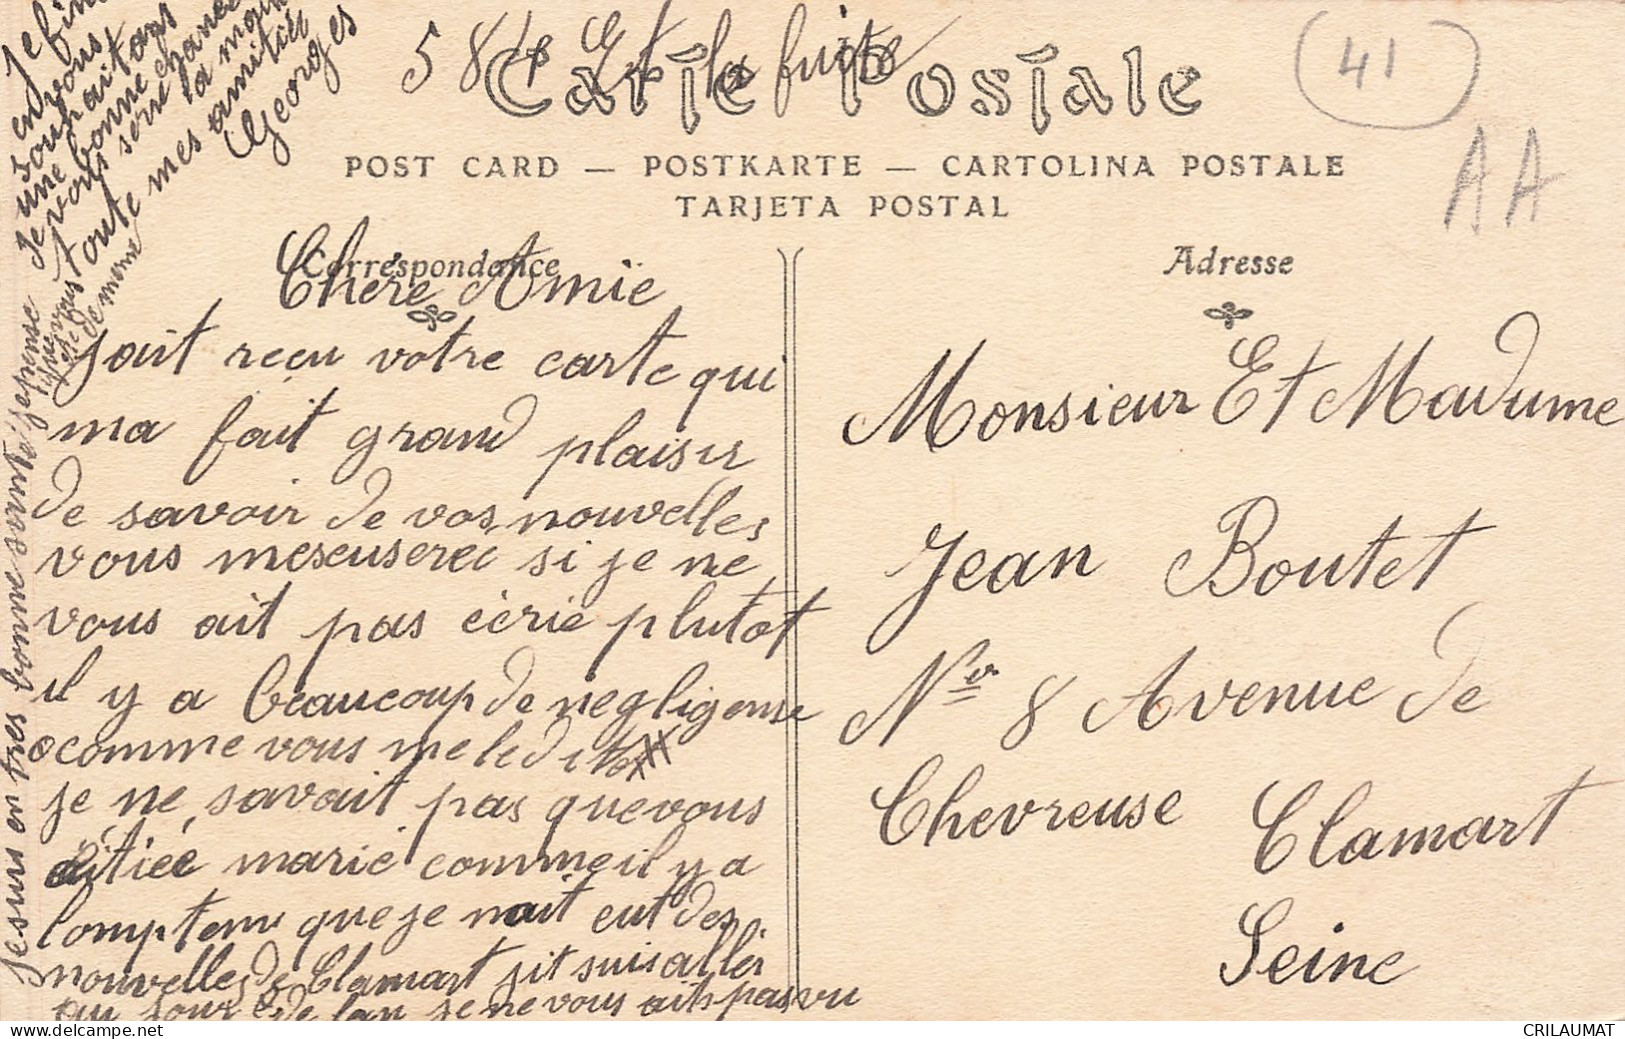 584 Et la fuite
41
AA
Carte Postale
POST CARD — POSTKARTE — CARTOLINA POSTALE
TARJETA POSTAL
Correspondance
Chére Amïe
jait reçu votre carte qui
ma fait grand plaisir
de savoir de vos nouvelles
vous mescuserec si je ne
vous ait pas écrie plutot
il y a beaucoup de negligense
comme vous me le dit
je ne savait pas que vous
étiéé marié comme il y a
lomptemr que je nait eut des
nouvelles de Clamart jit suis aller
au jour de lan je ne vous aits pas vu
je suis en tres bonne santé j'epense
que vous
ete
de meme
Je fini
en vous
souhaitant
une bonne
Je vous serre la main
toute mes amitiéé
Georges
Adresse
Monsieur Et Madame
Jean Boutet
Nr 8 Avenue de
Chevreuse Clamart
Seine
CRILAUMAT